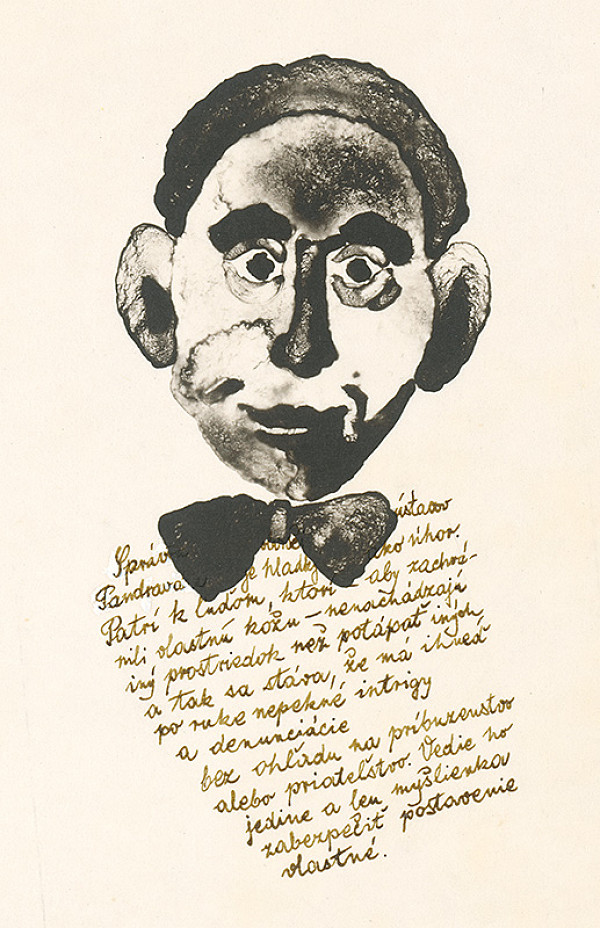 Správ ústavov
Pandrava je hladk ako úhor.
Patrí k ľuďom, ktorí – aby zachrá-
nili vlastnú kožu – nenachádzajú
iný prostriedok než potápať iných,
a tak sa stáva, že má ihneď
po ruke nepekné intrigy
a denunciácie
bez ohľadu na príbuzenstvo
alebo priateľstvo. Vedie ho
jedine a len myšlienka
zabezpečiť postavenie
vlastné.